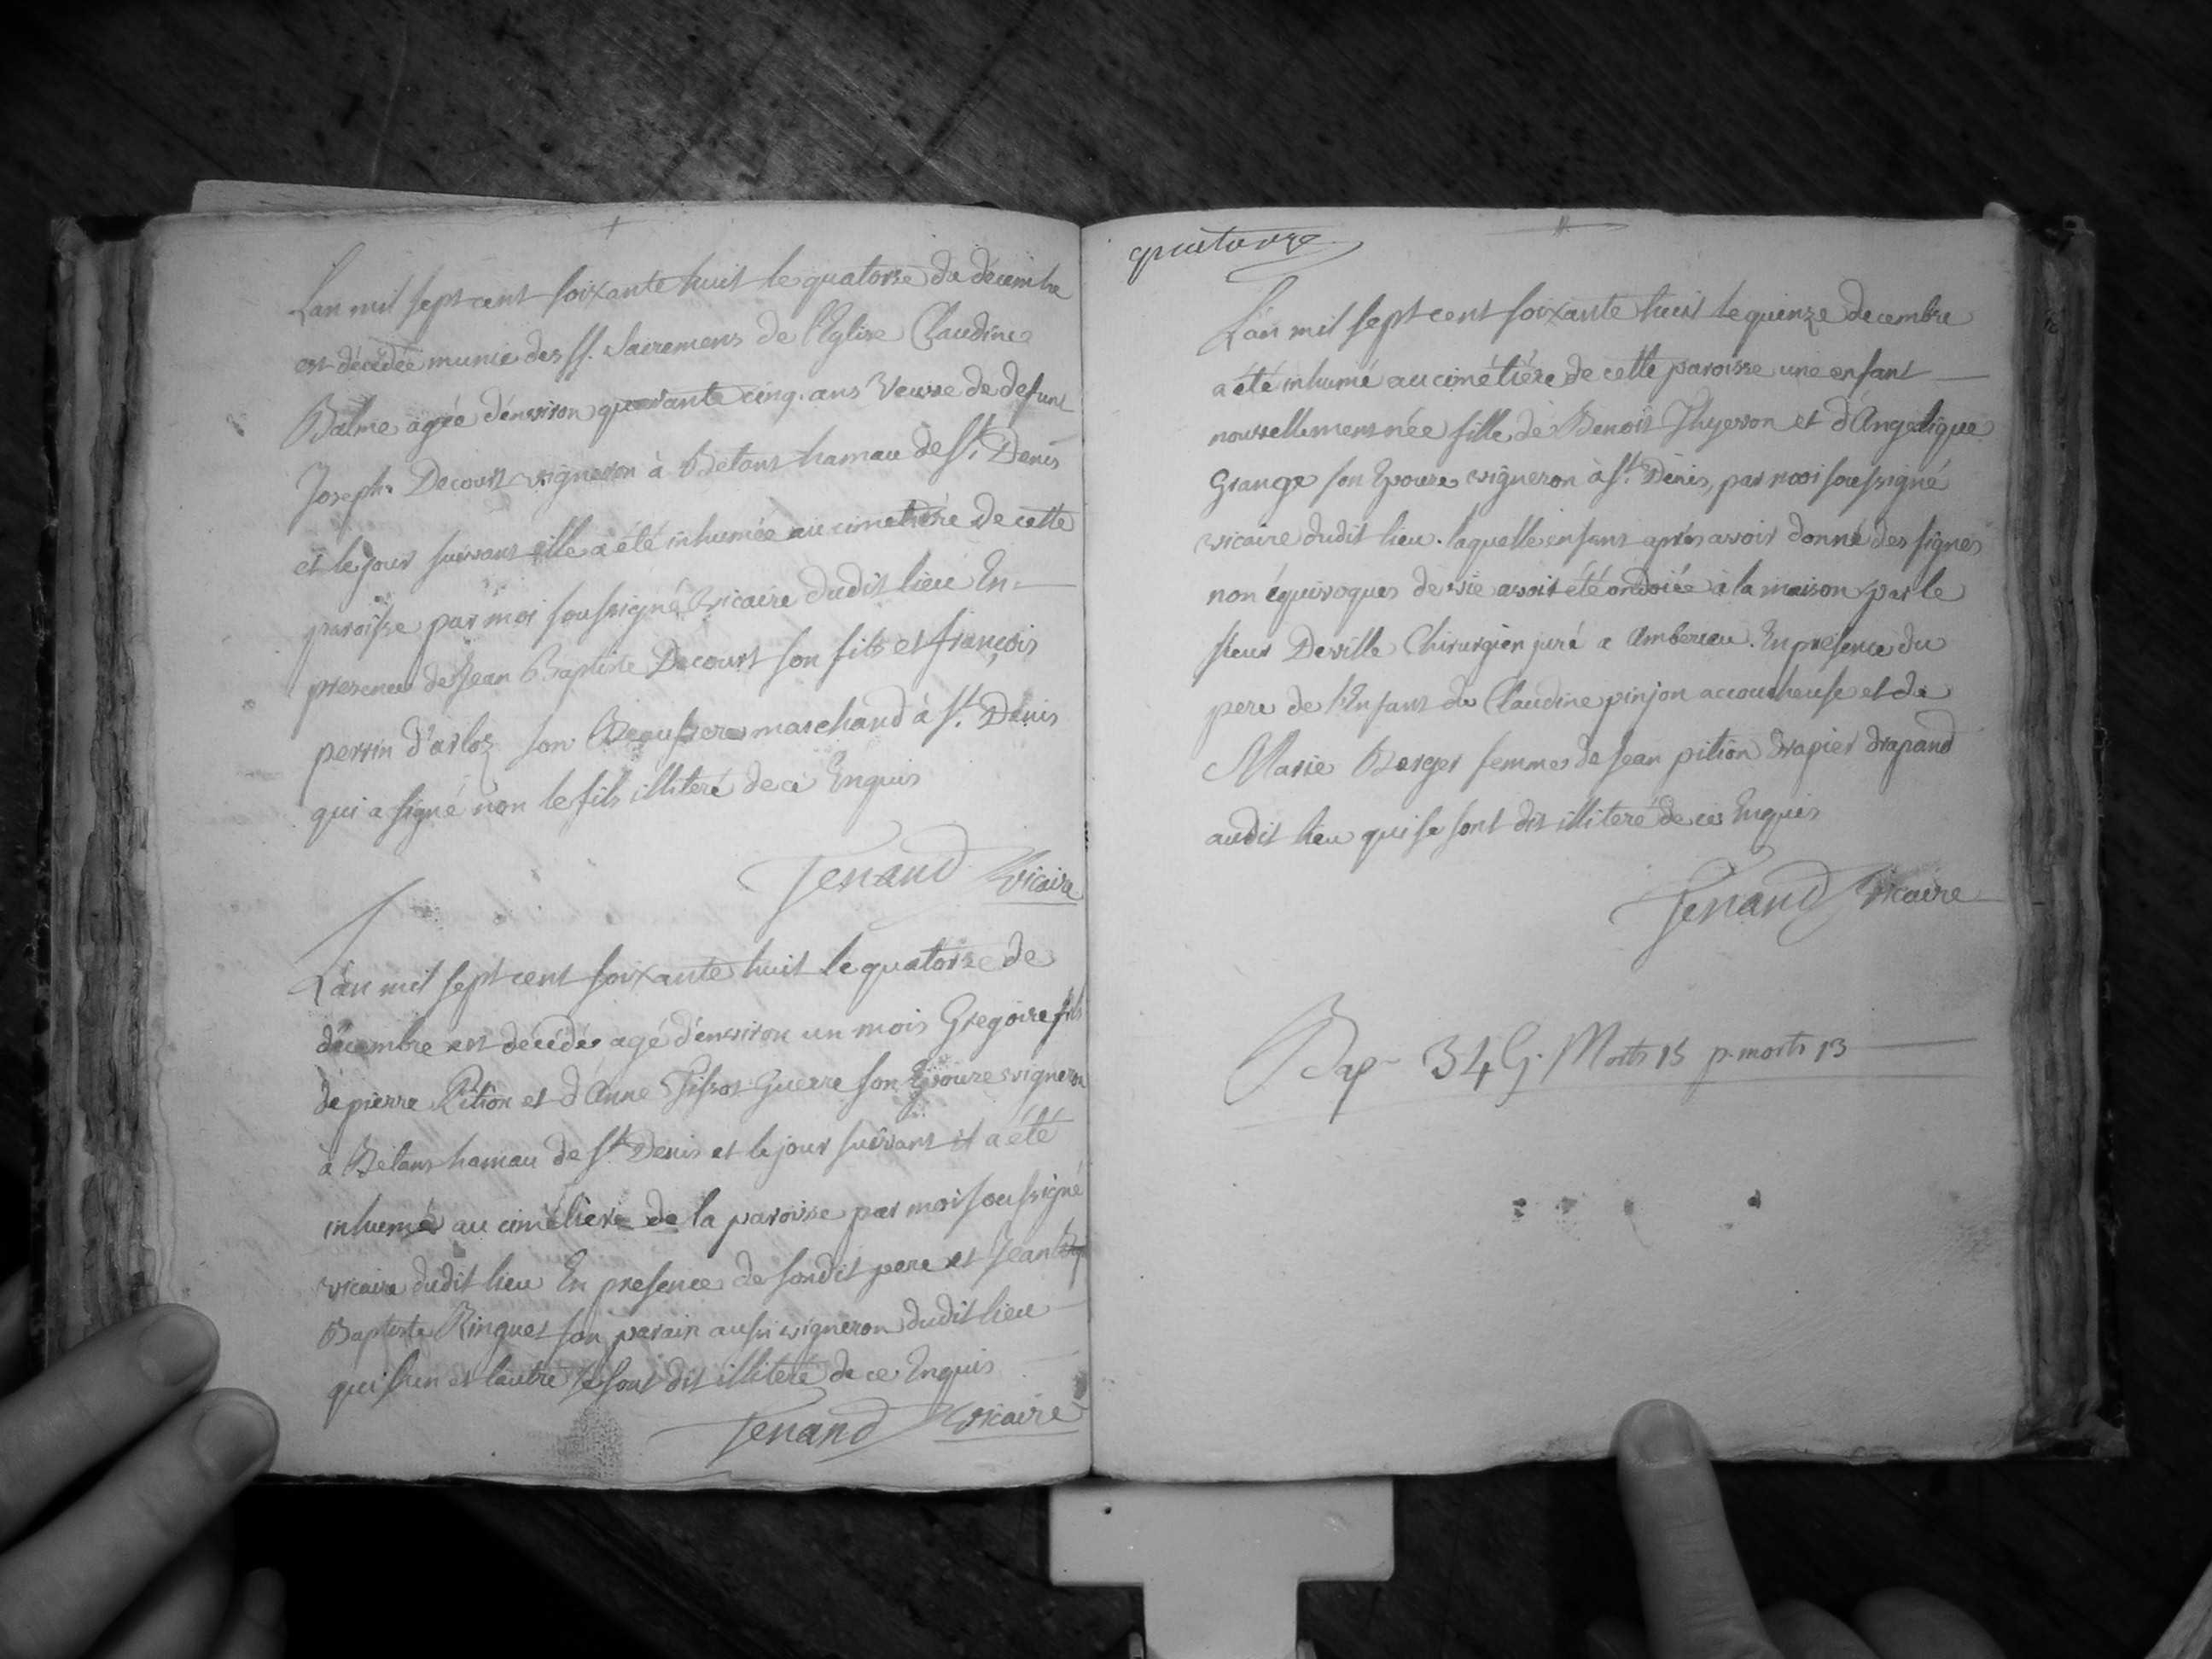 Lan mil sept cent soixante huit le quatorse de décembre
est décédée munie des SS. Sacremens de l'Eglise Claudine
Balme agée d'environ quarante cinq ans Veuve de defunt
Joseph Decourt vigneron à Betant hamau de St. Denis
et le jour suivant elle a été inhumée au cimetière de cette
paroisse par moi soussigné Vicaire dudit lieu En
presence de Jean Baptiste Decourt son fils et françois
perrin d'arloz son Beaufrere marchand à St. Denis
qui a signé non le fils illiteré de ce Enquis
Tenand Vicaire
L'an mil sept cent soixante huit le quatorze de
décembre est décédé agé d'environ un mois Gregoire fils
de pierre Pition et d'Anne Guerre son Epouse vigneron
à Betant hamau de St Denis et le jour suivant il a été
inhumé au cimétière de la paroisse par moi soussigné
vicaire dudit lieu En presence de sondit pere et Jean
Baptiste Ringuet son parain aussi vigneron dudit lieu
qui l'un et l'autre se sont dit illiteré de ce Enquis
Tenand Vicaire
quatorze
L'an mil sept cent soixante huit le quinze decembre
a été inhumé au cimétiére de cette paroisse une enfant
nouvellement née fille de Benoit Thyeron et d'Angelique
Grange son Epouse vigneron à St. Denis, par moi soussigné
vicaire dudit lieu. laquelle enfant après avoir donné des signes
non équivoques de vie avoit été ondoiée à la maison par le
sieur Deville Chirurgien juré a Amberieu. En presence du
pere de l'Enfant de Claudine pinjon accoucheuse et de
Marie Berger femme de Jean pition Drapier drapand
audit lieu qui se sont dit illiteré de ce Enquis
Tenand Vicaire
Bap 34 G. Morts 15 p. morts 13